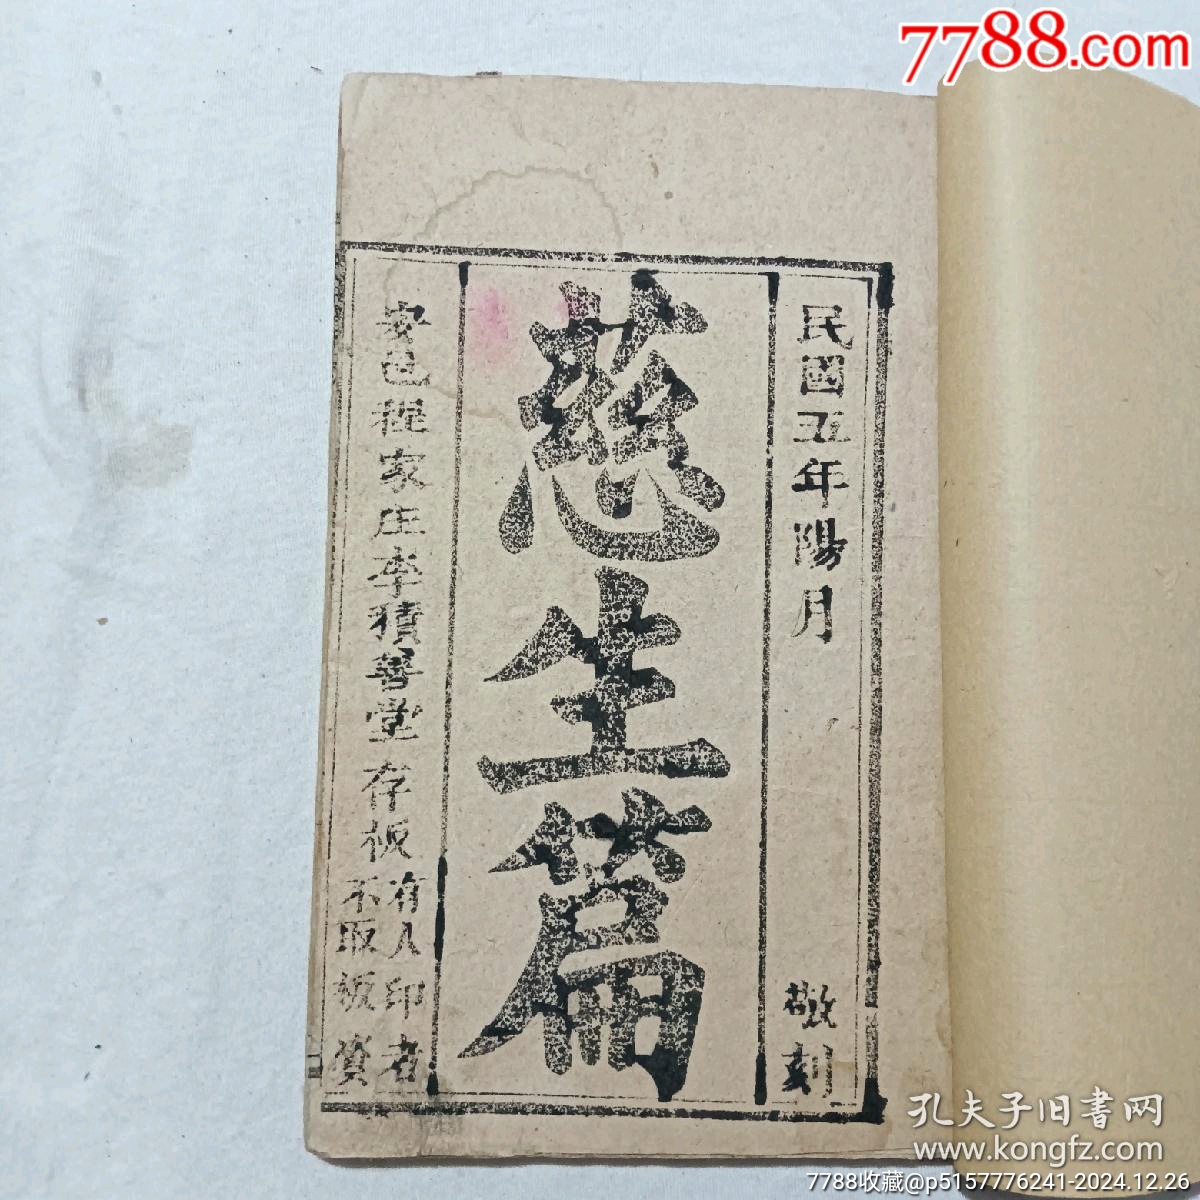 7788.com
民國五年陽月
敬刻
慈生篇
安邑程家庄李積善堂存板
有人印者
不取板資
孔夫子旧書网
www.kongfz.com
7788收藏@p5157776241-2024.12.26